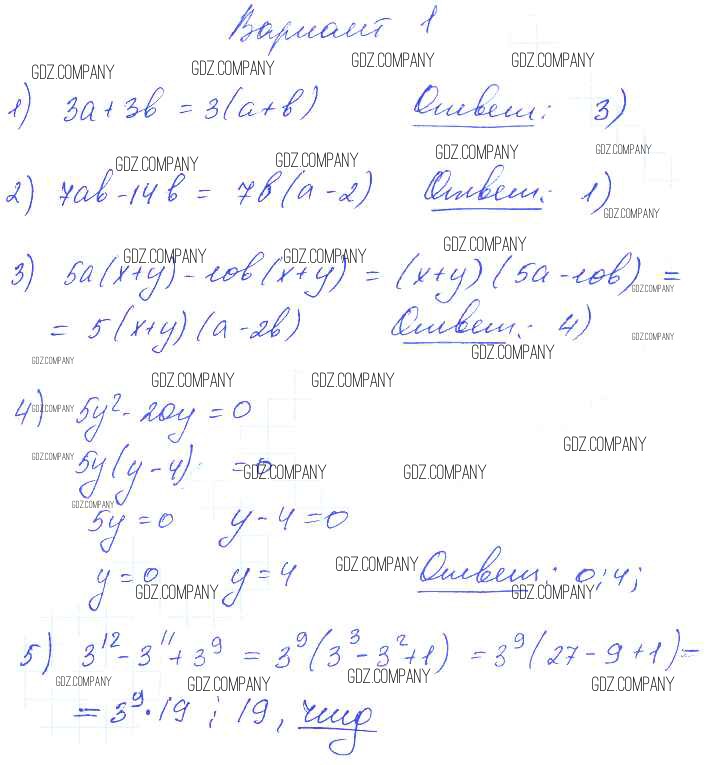 Вариант 1
GDZ.COMPANY GDZ.COMPANY GDZ.COMPANY GDZ.COMPANY
1) 3a+3b = 3(a+b) Ответ: 3)
GDZ.COMPANY GDZ.COMPANY GDZ.COMPANY GDZ.COMPANY
2) 7ab-14b = 7b(a-2) Ответ: 1)
GDZ.COMPANY
GDZ.COMPANY GDZ.COMPANY GDZ.COMPANY
3) 5a(x+y)-10b(x+y) = (x+y)(5a-10b) =
GDZ.COMPANY
= 5(x+y)(a-2b) Ответ: 4)
GDZ.COMPANY GDZ.COMPANY
GDZ.COMPANY
GDZ.COMPANY GDZ.COMPANY
4) 5y²-20y=0
GDZ.COMPANY
GDZ.COMPANY
5y(y-4) =0
GDZ.COMPANY GDZ.COMPANY GDZ.COMPANY
GDZ.COMPANY
5y=0 y-4=0
GDZ.COMPANY
y=0 y=4 Ответ: 0;4;
GDZ.COMPANY GDZ.COMPANY
5) 3¹²-3¹¹+3⁹ = 3⁹(3³-3²+1) =3⁹(27-9+1)=
GDZ.COMPANY GDZ.COMPANY GDZ.COMPANY GDZ.COMPANY
=3⁹·19 ⋮ 19, чтд